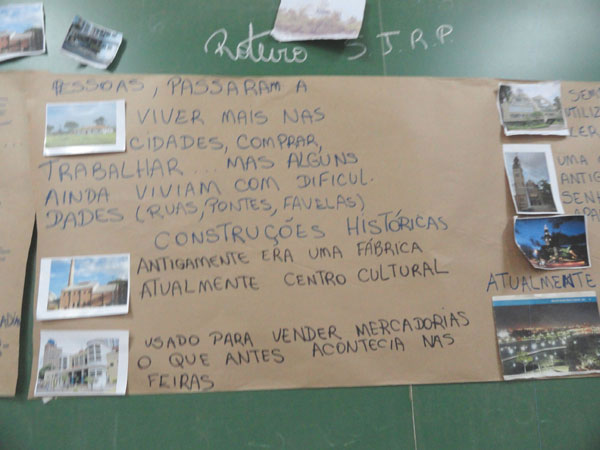 Roteiro S.J.R.P.
PESSOAS, PASSARAM A
VIVER MAIS NAS
CIDADES, COMPRAR,
TRABALHAR... MAS ALGUNS
AINDA VIVIAM COM DIFICUL-
DADES (RUAS, PONTES, FAVELAS)
CONSTRUÇÕES HISTÓRICAS
ANTIGAMENTE ERA UMA FÁBRICA
ATUALMENTE CENTRO CULTURAL
USADO PARA VENDER MERCADORIAS
O QUE ANTES ACONTECIA NAS
FEIRAS
UTILIZ
LER
UMA
ANTIG
SENH
APAR
ATUALMENTE